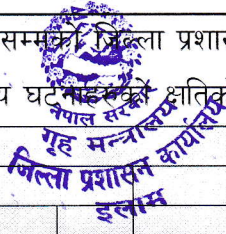 सम्मको जिल्ला प्रशा
य घटनाहरुको क्षतिक
नेपाल सरकार
गृह मन्त्रालय
जिल्ला प्रशासन कार्यालय
इलाम